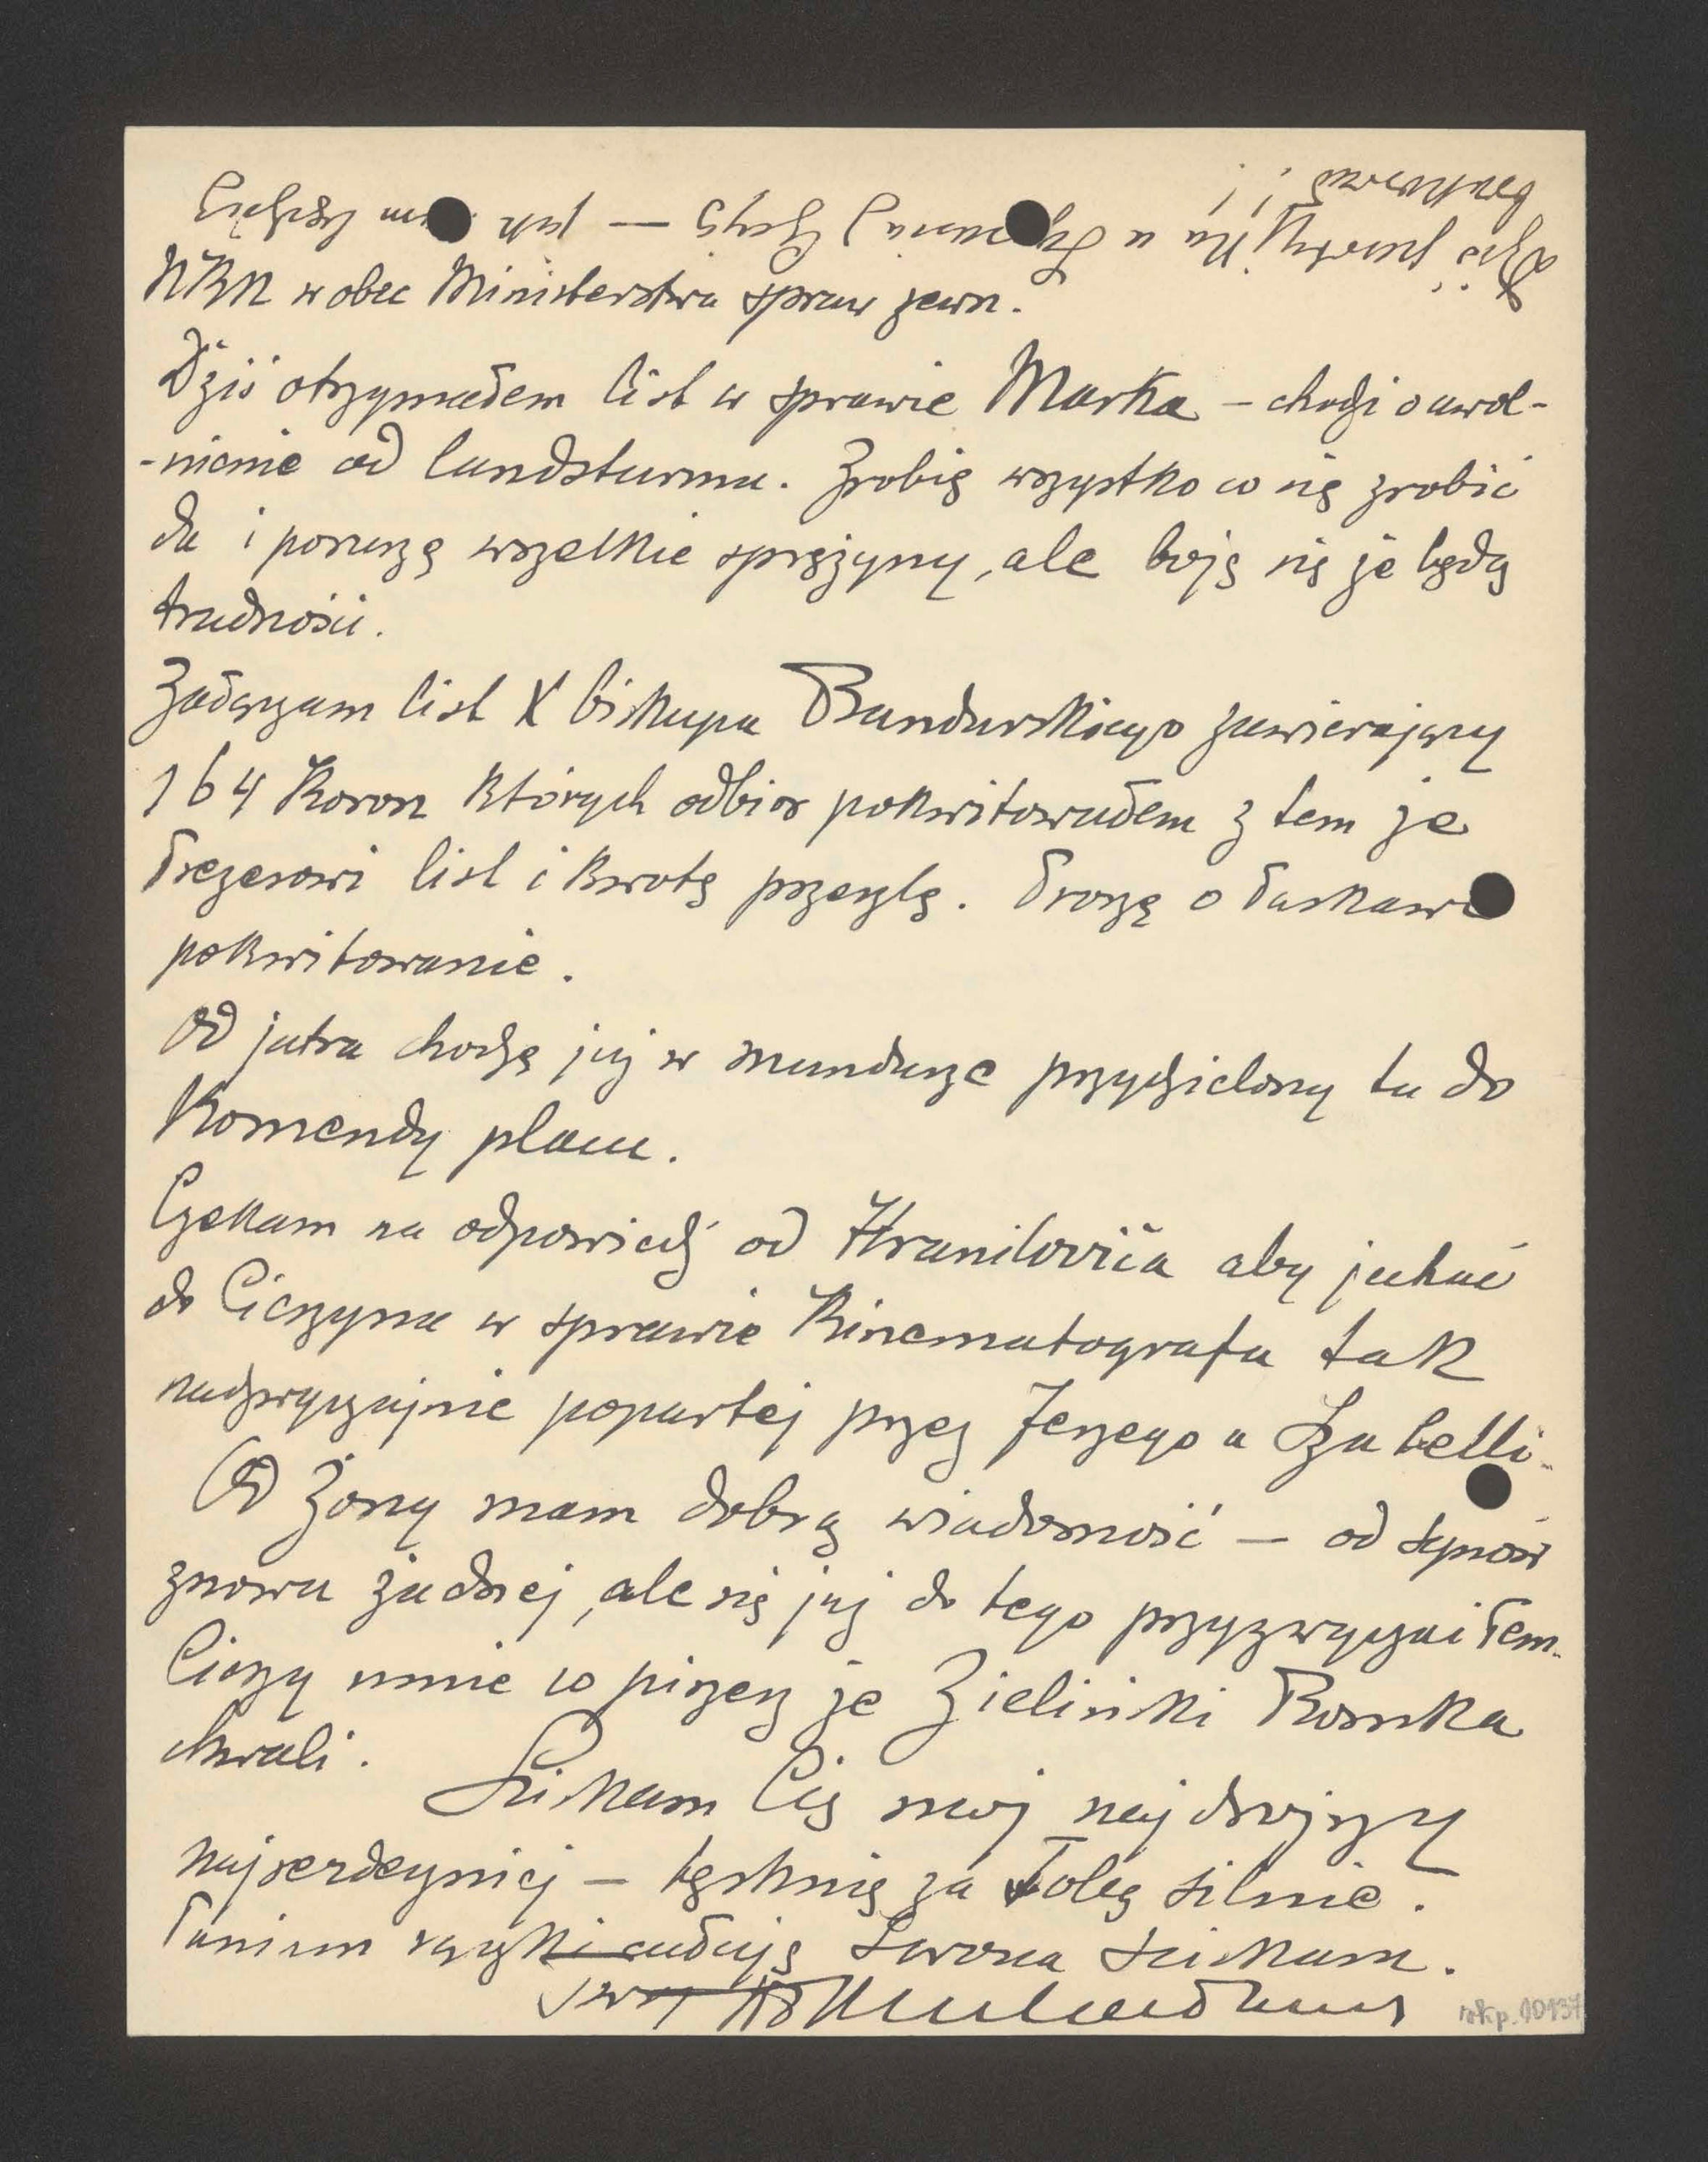 NKN wobec Ministerstwa spraw zewn.
Dziś otrzymałem list w sprawie Marka – chodzi o uwol-
-nienie od landsturmu. Zrobię wszystko co się zrobić
da i poruszę wszelkie sprężyny, ale boję się że będą
trudności.
Załączam list X biskupa Bandurskiego zawierający
164 Koron których odbiór pokwitowałem z tem że
Prezesowi list i kwotę przeszlę. Proszę o łaskawe
pokwitowanie.
Od jutra chodzę już w mundurze przydzielony tu do
Komendy placu.
Czekam na odpowiedź od Hraniloviča aby jechać
do Cieszyna w sprawie Kinematografu tak
nadzwyczajnie popartej przez Jerzego u Szabelli.
Od Żony mam dobrą wiadomość – od synów
znowu żadnej, ale się już do tego przyzwyczaiłem.
Cieszy mnie co piszesz że Zieliński Romka
chwali.
Ściskam Cię mój najdroższy
najserdeczniej – tęsknię za Tobą silnie.
Paniom rączki całuję Lwowa ściskam.
rkp. 00137
Dziś jeszcze
u
będę – jak